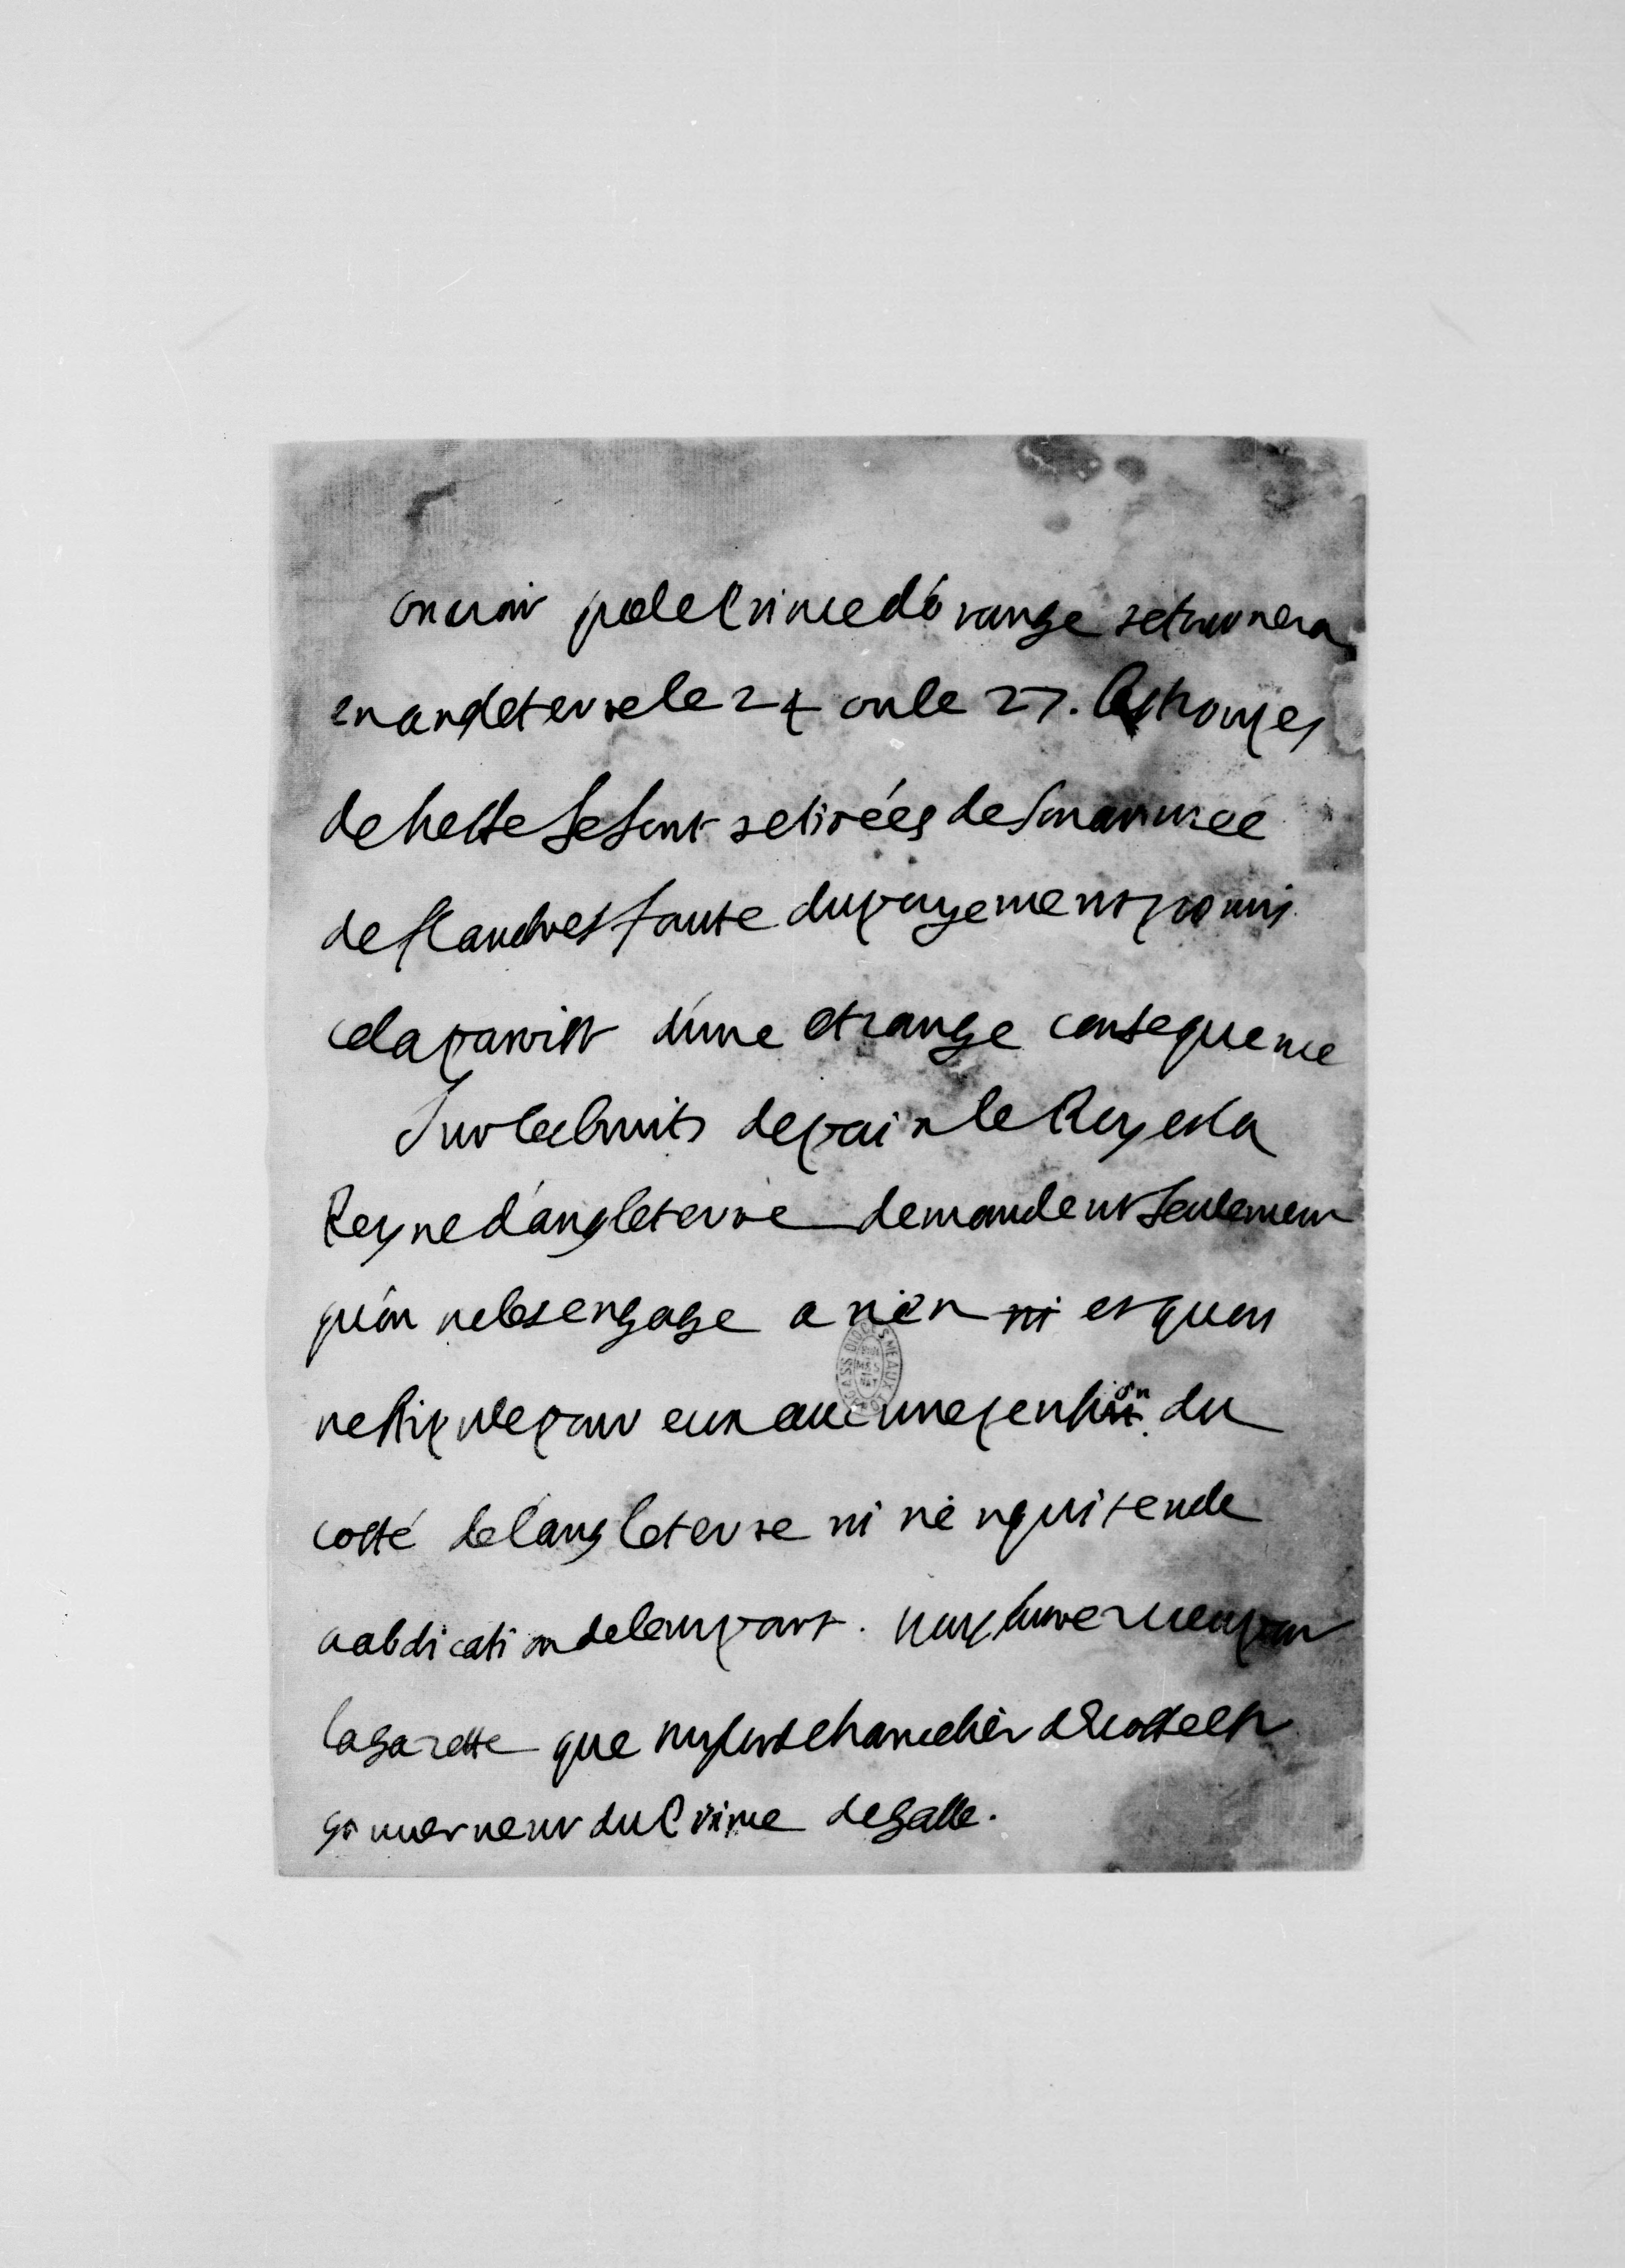 on croit que le Prince d'orange retournera
en angleterre le 24 ou le 27. Les troupes
de hesse se sont retirées de son armée
de flandres faute du payement promis
cela paroist d'une etrange consequence
Sur les bruits de paix le Roy et la
Reyne d'angleterre demandent seulement
qu'on ne les engage a rien ni et qu'on
ne stipule pour eux aucune pension du
costé de l'angleterre ni rien qui tende
a abdication de leur part. vous aurez veu par
la gazette que mylord chancelier d'Ecosse est
gouverneur du Prince de galle.